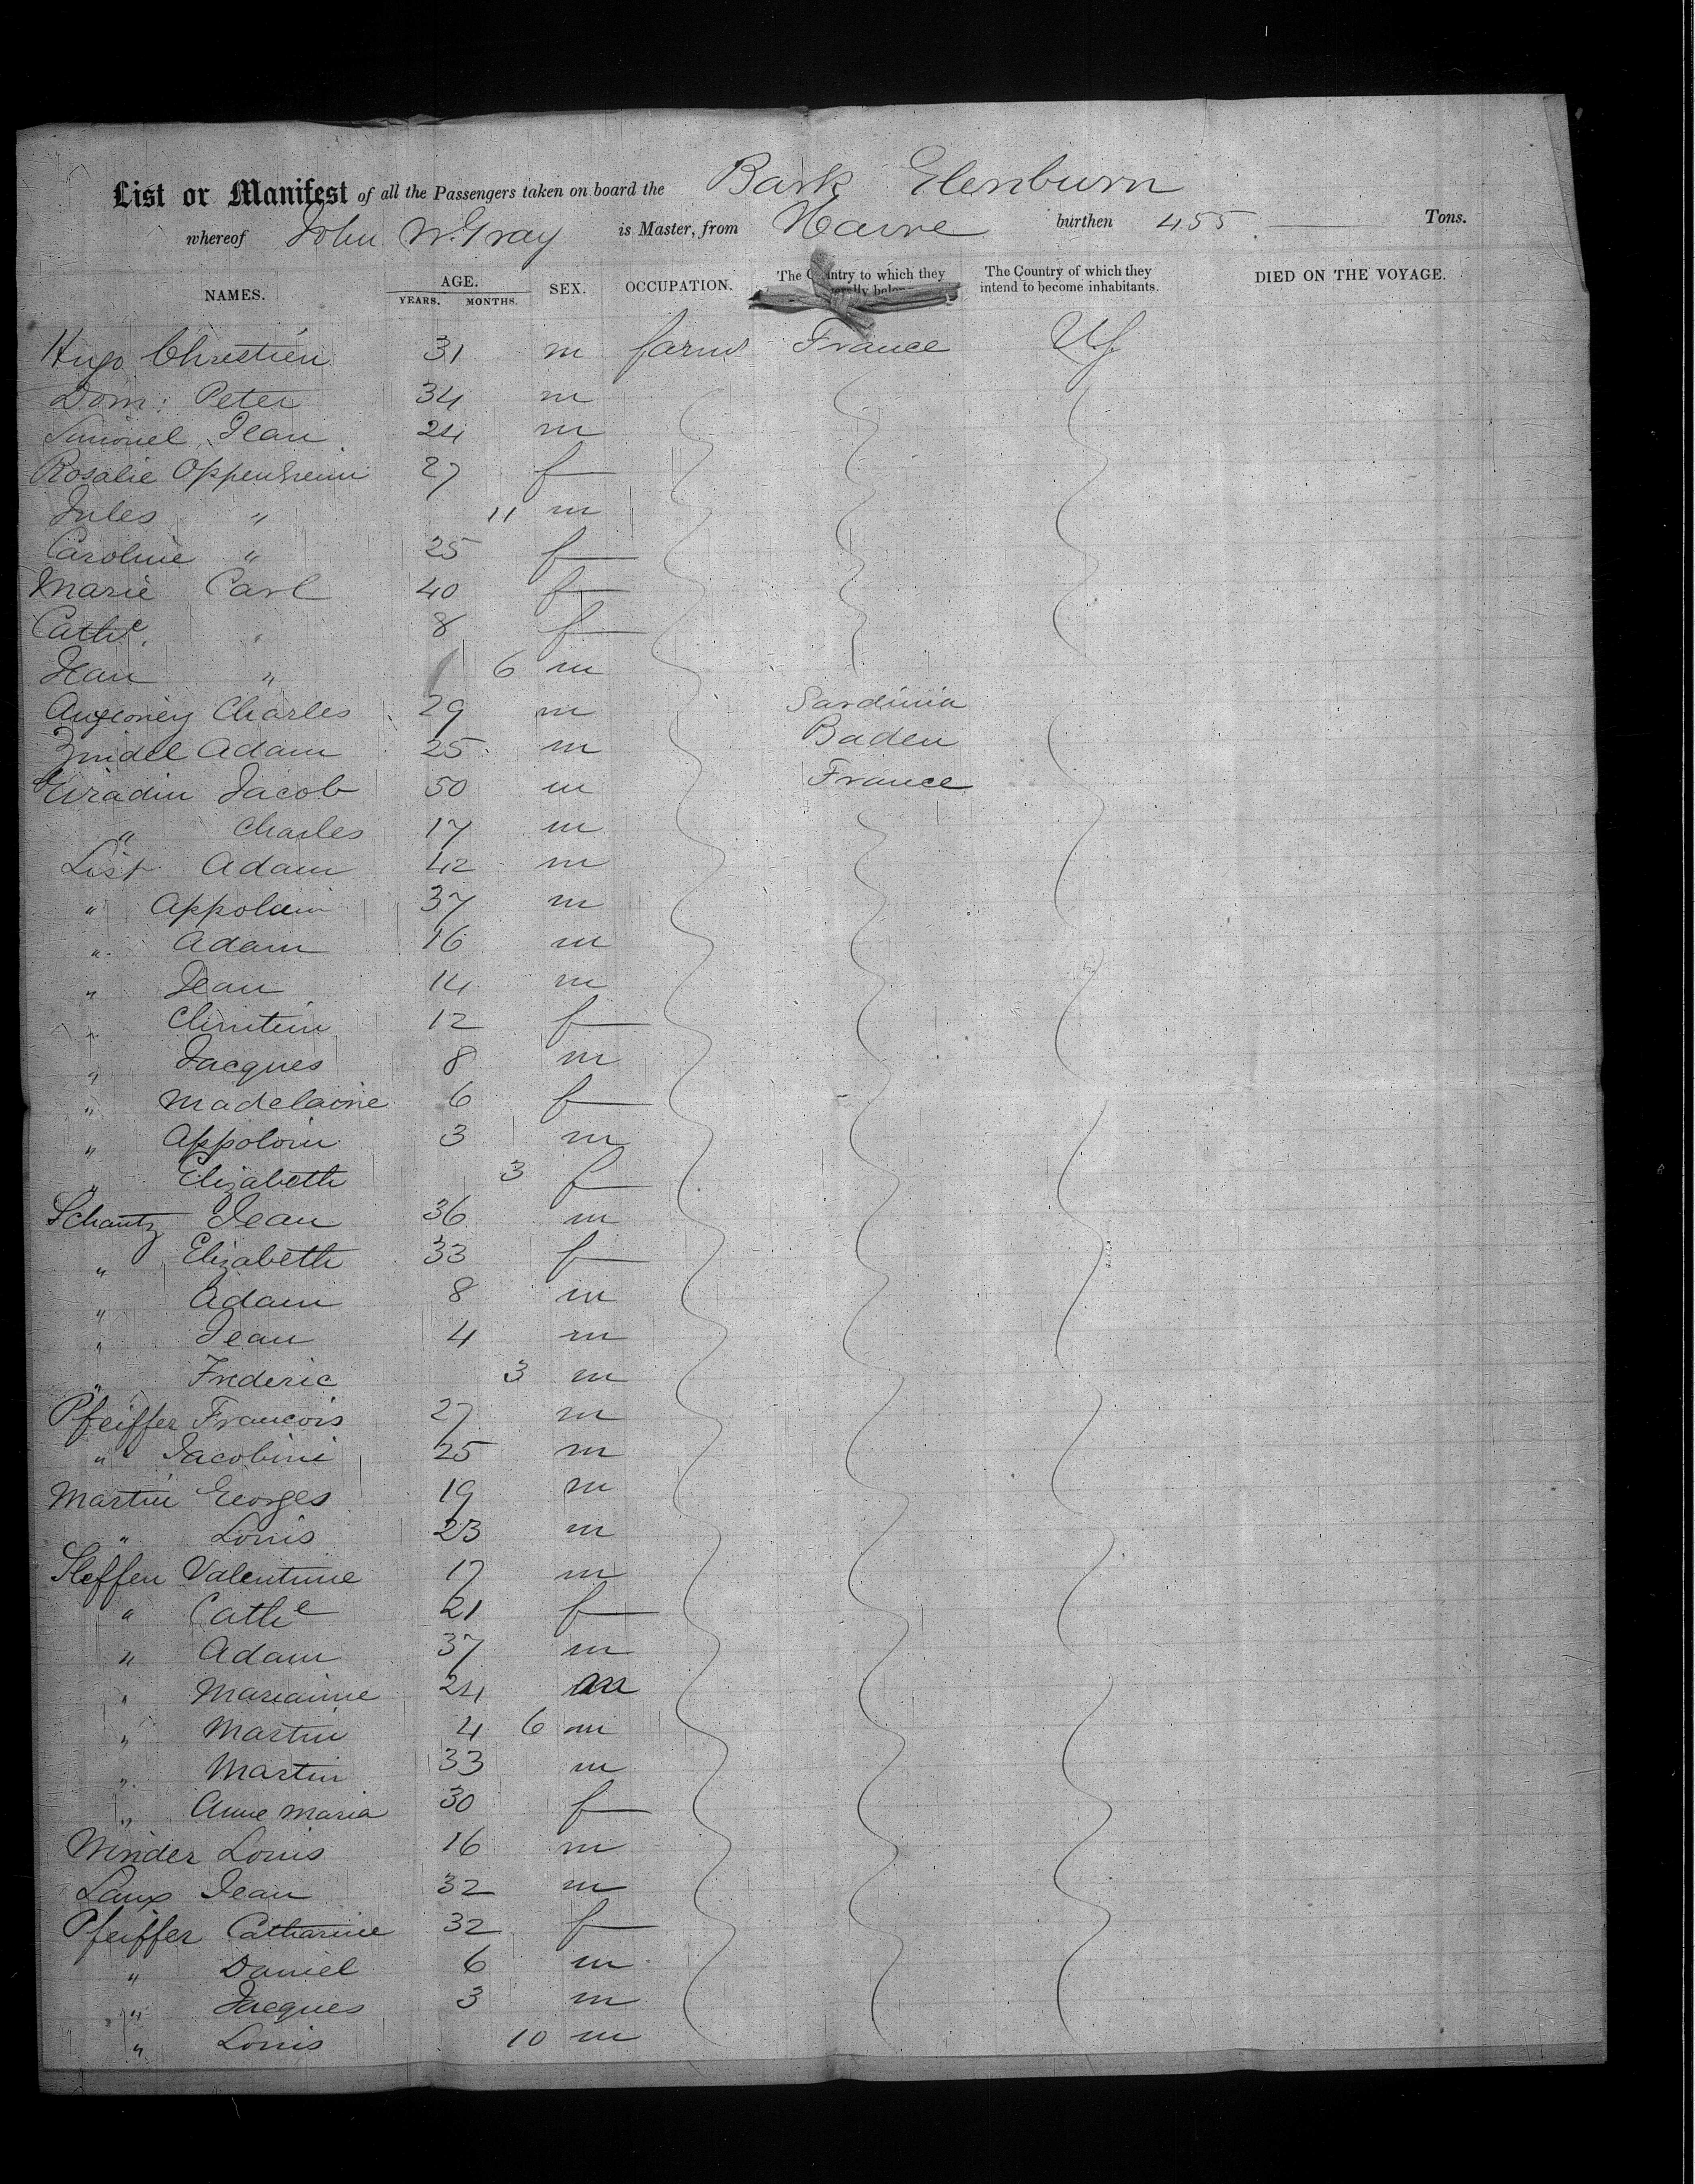 List or Manifest of all the Passengers taken on board the Bark Glenburn
whereof John W. Gray is Master, from Havre burthen 455 Tons.
NAMES. AGE. YEARS. MONTHS. SEX. OCCUPATION. The Country to which they The Country of which they intend to become inhabitants. DIED ON THE VOYAGE.
Hugo Chrestien 31 m farmr France US
Dom: Peter 34 m
Simonel Jean 24 m
Rosalie Oppenheim 27 f
Jules " 11 m
Caroline " 25 f
Marie Carl 40 f
Cathe. " 8 f
Jean " 1 6 m
Charles 29 m Sardinia
Zindel Adam 25 m Baden
Jacob 50 m France
" Charles 17 m
List Adam 42 m
" Appolain 37 m
" Adam 16 m
" Jean 14 m
" Christin 12 f
" Jacques 8 m
" Madelaine 6 f
" Appoloin 3 m
" Elizabeth 3 f
Schantz Jean 36 m
" Elizabeth 33 f
" Adam 8 m
" Jean 4 m
" Frederic 3 m
Pfeiffer Francois 27 m
" Jacobini 25 m
Martin Georges 19 m
" Louis 23 m
Steffen Valentine 17 m
" Cathe 21 f
" Adam 37 m
" Marianne 24 m
" Martin 4 6 m
" Martin 33 m
" Anne Maria 30 f
Winder Louis 16 m
Laux Jean 32 m
Pfeiffer Catharine 32 f
" Daniel 6 m
" Jacques 3 m
" Louis 10 m